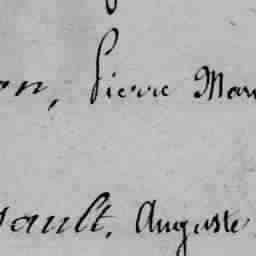 on, Pierre Mar
sault, Auguste